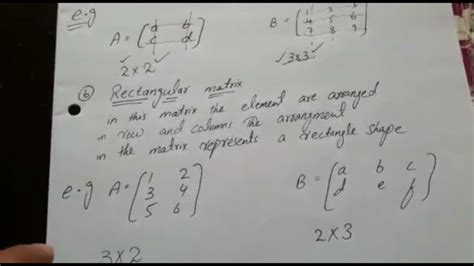 e.g
A = [a b
c d]
B = [1 2 3
4 5 6
7 8 9]
2 x 2
3x3
(b) Rectangular matrix
in this matrix the element are arranged
in row and columns The arrangment
in the matrix represents a rectangle shape
e.g A = [1 2
3 4
5 6]
B = [a b c
d e f]
3x2
2 x 3